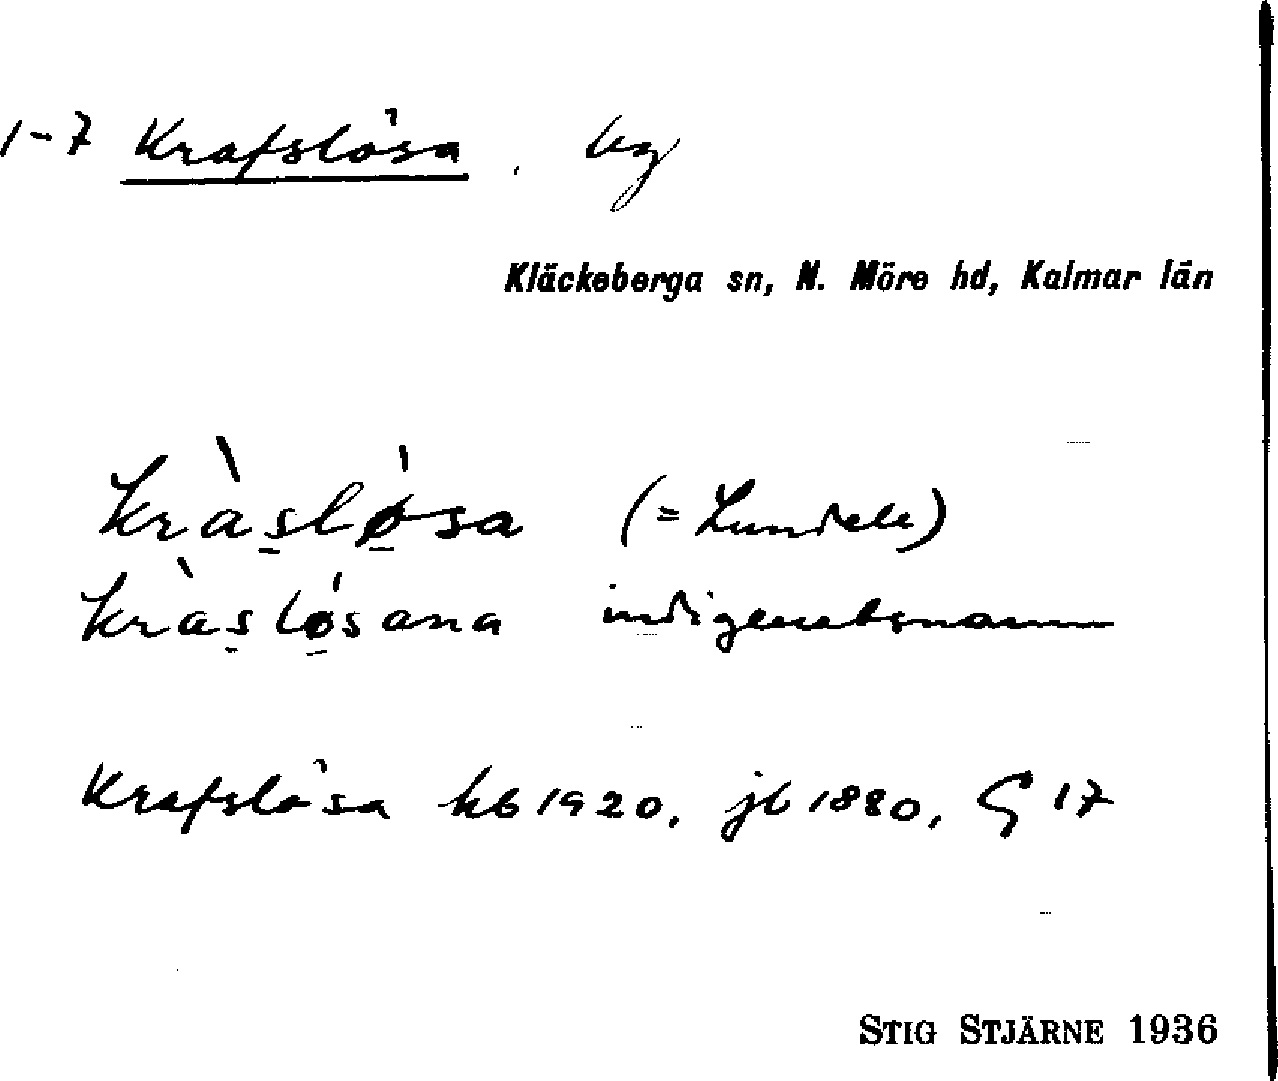 1-7 Krafslösa, by
Kläckeberga sn, N. Möre hd, Kalmar län
kràsløsa (= Lundell)
kràsløsana
Krafslösa hb 1920, jb 1880, G 17
STIG STJÄRNE 1936